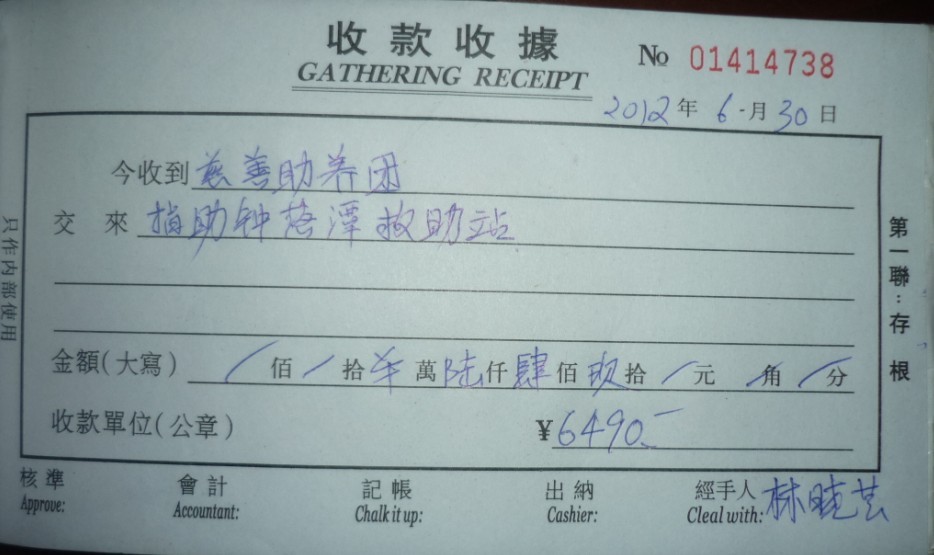 收款收據
GATHERING RECEIPT
No 01414738
2012年6月30日
今收到 慈善助养团
交來 捐助钟落潭救助站
金額(大寫) / 佰 / 拾 萬 陆仟肆佰玖拾 / 元 / 角 / 分
收款單位(公章) ¥6490.-
核準 會計 記帳 出納 經手人 林晓芸
Approve: Accountant: Chalk it up: Cashier: Cleal with:
只作内部使用
第一聯:存根